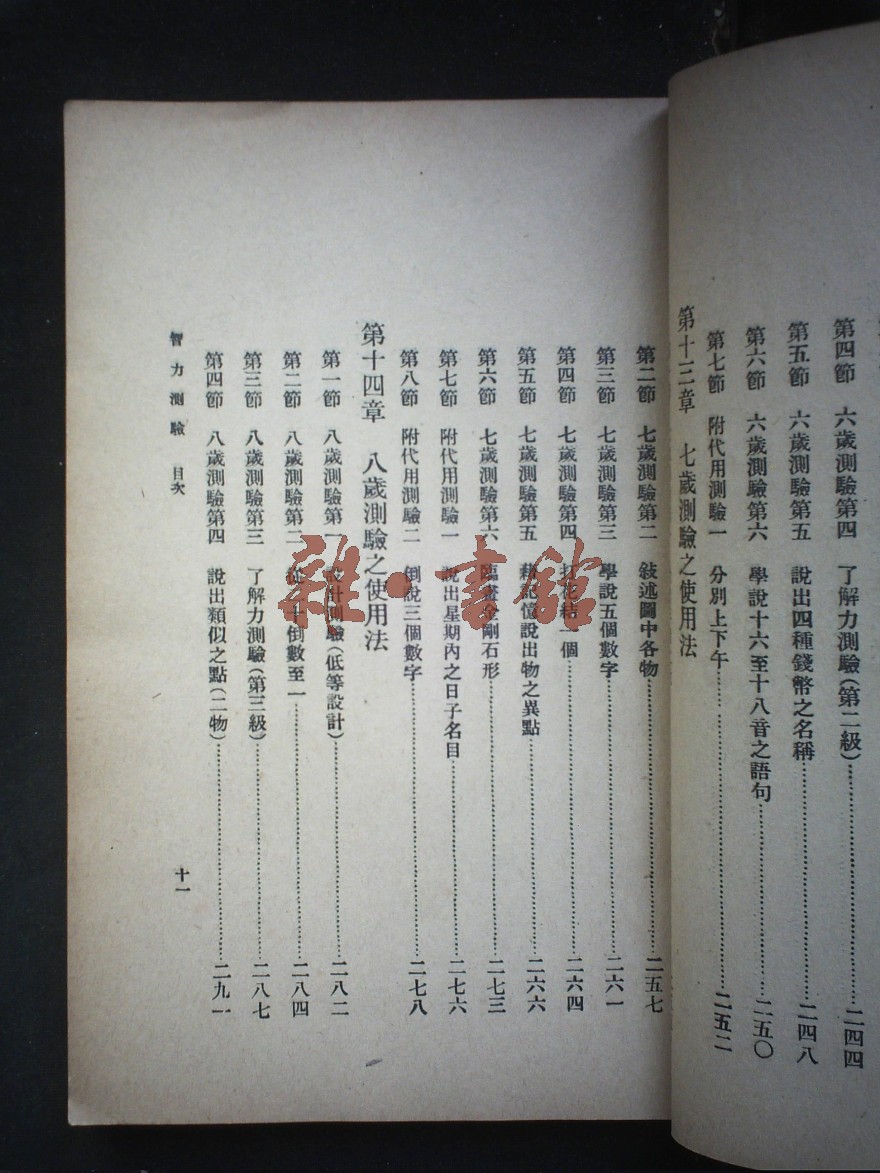 第四節 六歲測驗第四 了解力測驗(第二級)……二四四
第五節 六歲測驗第五 說出四種錢幣之名稱……二四八
第六節 六歲測驗第六 學說十六至十八音之語句……二五〇
第七節 附代用測驗一 分別上下午……二五二
第十三章 七歲測驗之使用法
第二節 七歲測驗第二 敍述圖中各物……二五七
第三節 七歲測驗第三 學說五個數字……二六一
第四節 七歲測驗第四 打花結一個……二六四
第五節 七歲測驗第五 藉記憶說出物之異點……二六六
第六節 七歲測驗第六 臨畫金剛石形……二七三
第七節 附代用測驗一 說出星期內之日子名目……二七六
第八節 附代用測驗二 倒說三個數字……二七八
第十四章 八歲測驗之使用法
第一節 八歲測驗第一 設計測驗(低等設計)……二八二
第二節 八歲測驗第二 從二十倒數至一……二八四
第三節 八歲測驗第三 了解力測驗(第三級)……二八七
第四節 八歲測驗第四 說出類似之點(二物)……二九一
智力測驗 目次
十一
雜·書館